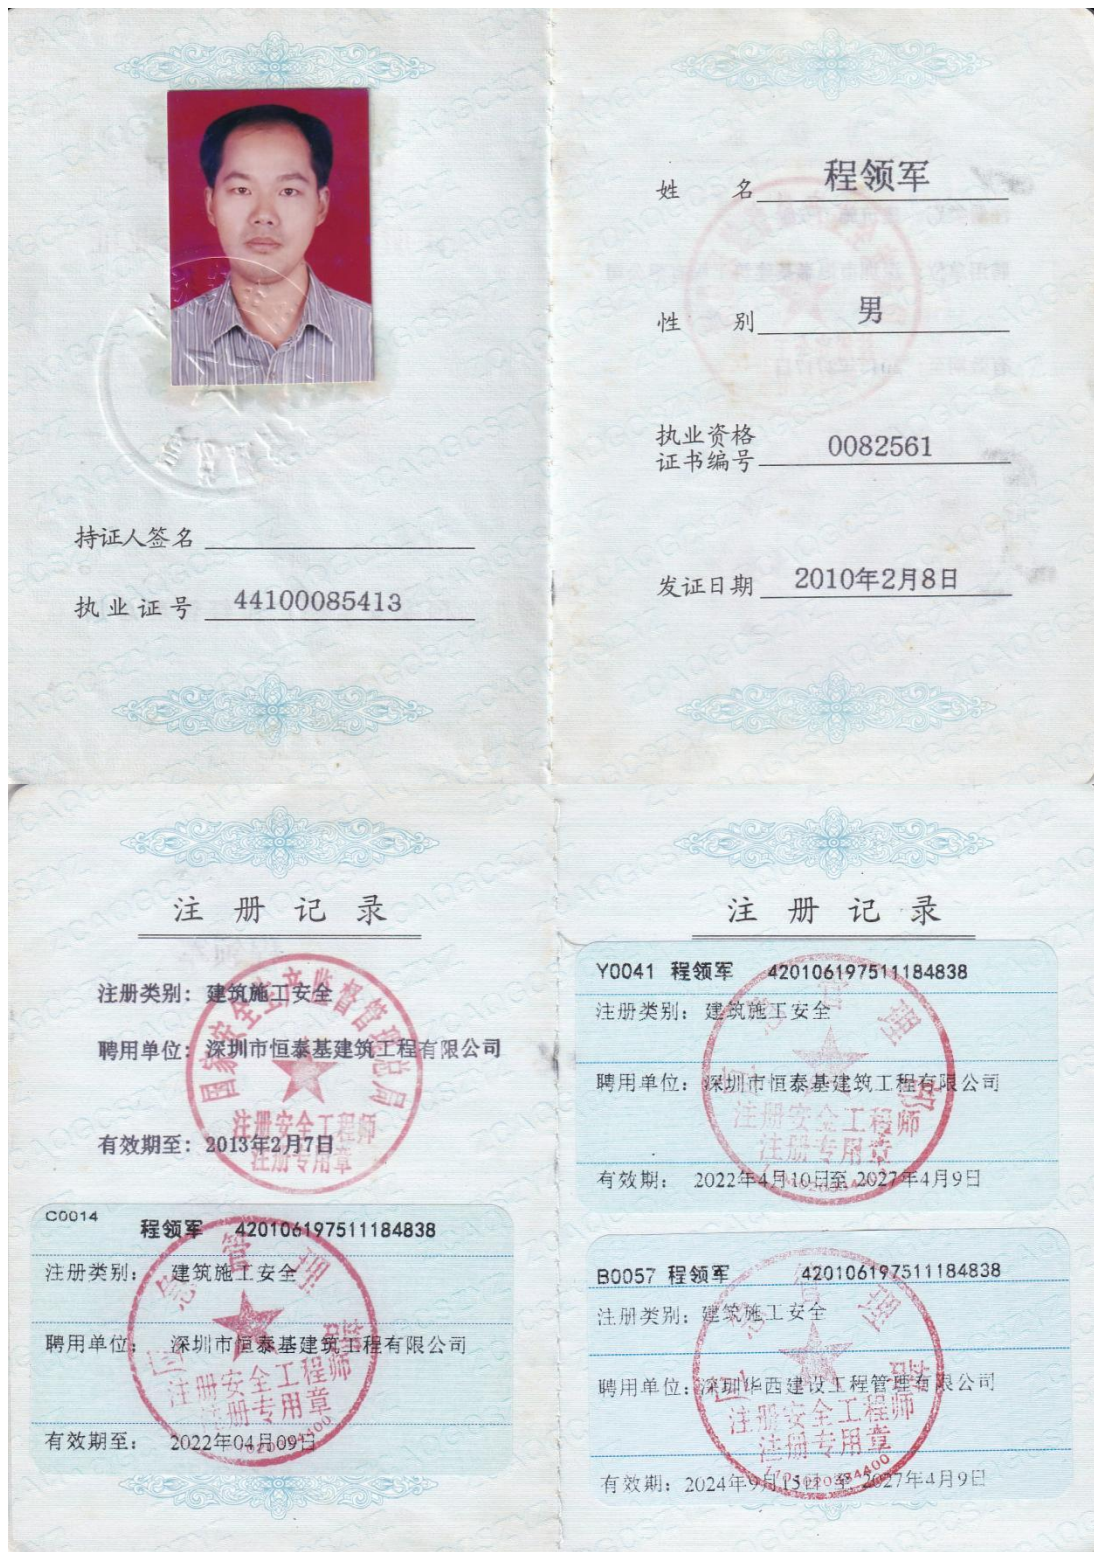 姓 名 程领军
性 别 男
执业资格
证书编号 0082561
发证日期 2010年2月8日
持证人签名
执业证号 44100085413
注册记录
注册类别：建筑施工安全
聘用单位：深圳市恒泰基建筑工程有限公司
有效期至：2013年2月7日
国家安全生产监督管理总局
注册安全工程师
注册专用章
C0014
程领军 420106197511184838
注册类别：建筑施工安全
聘用单位：深圳市恒泰基建筑工程有限公司
有效期至：2022年04月09日
注册安全工程师
注册专用章
注册记录
Y0041 程领军 420106197511184838
注册类别：建筑施工安全
聘用单位：深圳市恒泰基建筑工程有限公司
有效期：2022年4月10日至2027年4月9日
注册安全工程师
注册专用章
B0057 程领军 420106197511184838
注册类别：建筑施工安全
聘用单位：深圳华西建设工程管理有限公司
有效期：2024年9月15日 至 2027年4月9日
注册安全工程师
注册专用章